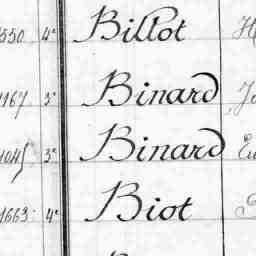 4e Billot
1167 3e Binard
1045 3e Binard
1663 4e Biot